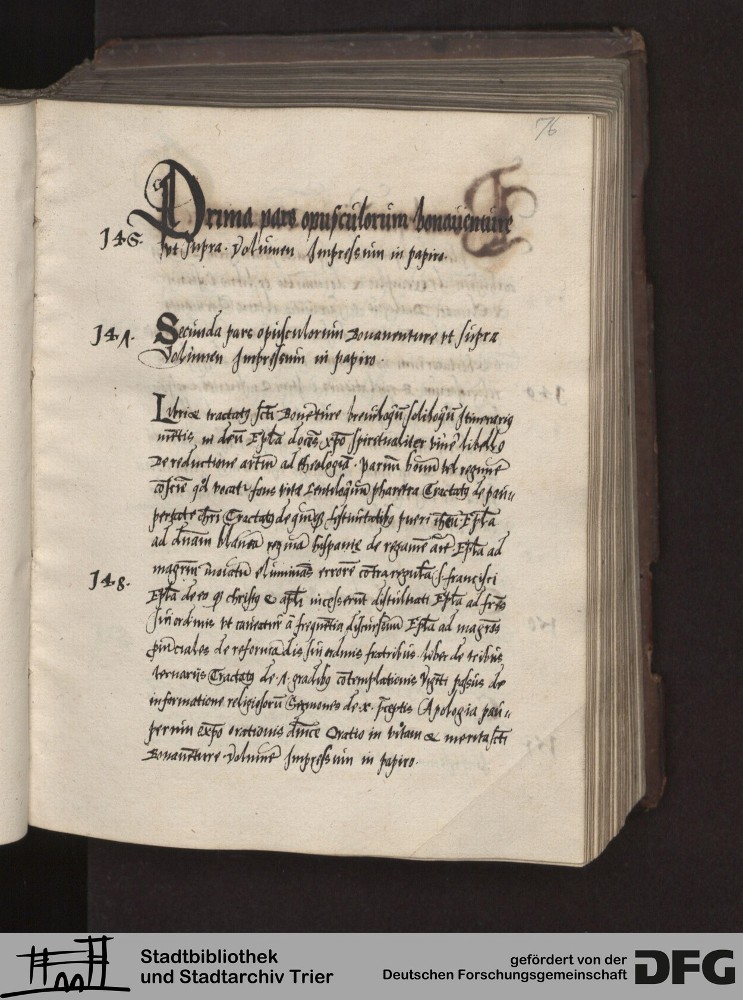 76
Prima pars opusculorum bonauenture
146. vt supra. Volumen Impressum in papiro.
147. Secunda pars opusculorum Bonauenture vt supra
Volumen Impressum in papiro.
Libri et tractatꝰ scti Bonauēture breuiloqū soliloqū Itinerariū
mētis in deū Epla docēs xpo spiritualiter viuē libellꝰ
De reductione artiū ad theologiā. paruū bonū vel regimē
cosciē qd vocat fons vite Centiloquiū pharetra Tractatꝰ de pau-
pertate chri Tractatꝰ de quinqꝫ festiuitatibꝫ pueri ihesu Epla
ad dnam blancā reginā hispanie de regimē aīe Epla ad
148. magrm eliminās errorē cōtra regulā s. francisci
Epla de eo qp christꝰ et apli incesserūt discalciati Epla ad frēs
sui ordinis vt caueatur a frequētia discursuum Epla ad magros
puinciales de reformādis sui ordinis fratribus liber de tribus
ternariis Tractatꝰ de .7. gradibꝫ cōtemplationis Viginti passus de
informatione religiosorū Sermones de .x. pceptis Apologia pau-
perum expo orationis dnice Oratio in vitam et merita scti
Bonauēture Volumē Impressum in papiro.
Stadtbibliothek
und Stadtarchiv Trier
gefördert von der
Deutschen Forschungsgemeinschaft
DFG